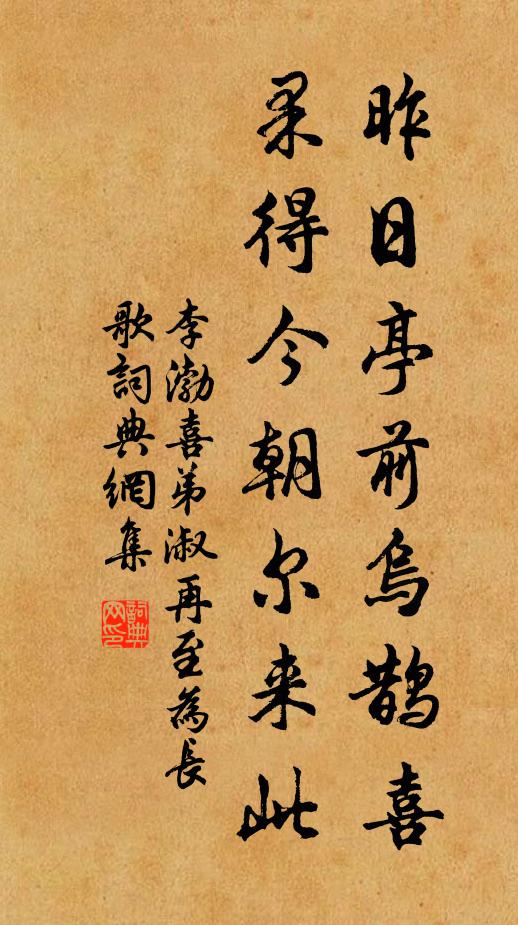 昨日亭前烏鵲喜
果得今朝尔来此
李渤喜弟淑再至為長
歌詞典網集
詞典
网印